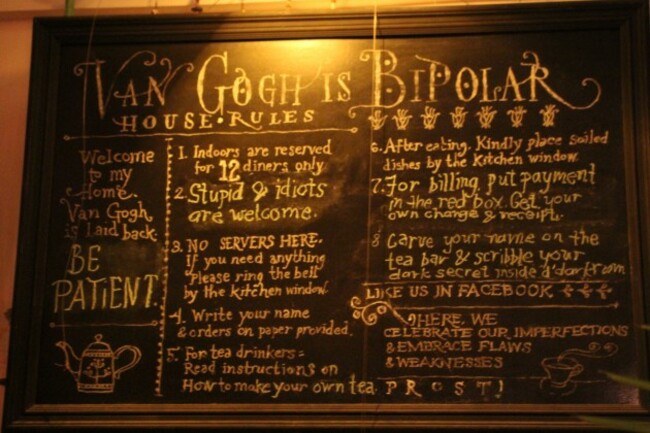 VAN GOGH IS BIPOLAR
HOUSE RULES
Welcome
to my
Home.
Van Gogh
is laid back.
BE
PATIENT
1. Indoors are reserved
for 12 diners only
2. Stupid & idiots
are welcome.
3. NO SERVERS HERE.
If you need anything
please ring the bell
by the kitchen window.
4. Write your name
& orders on paper provided.
5. For tea drinkers:
Read instructions on
How to make your own tea.
6. After eating. Kindly place soiled
dishes by the kitchen window.
7. For billing, put payment
in the red box. Get your
own change & receipt.
8 Carve your name on the
tea bar & scribble your
dark secret inside d'darkroom
LIKE US IN FACEBOOK
HERE, WE
CELEBRATE OUR IMPERFECTIONS
& EMBRACE FLAWS
& WEAKNESSES
PROST!